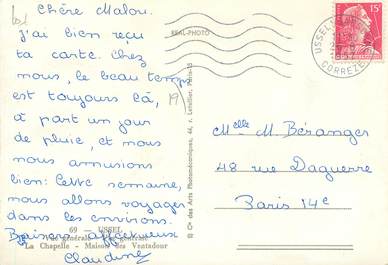 Chère Malou.
J'ai bien reçu
ta carte. Chez
nous, le beau temps
est toujours là,
à part un jour
de pluie, et nous
nous amusions
bien. Cette semaine,
nous allons voyager
dans les environs.
Baisers affectueux
Claudine
69 - USSEL
Vue générale
La Chapelle - Maison des Ventadour
REAL-PHOTO
© Cie des Arts Photomécaniques, 44, r. Letellier, Paris-15
USSEL
CORREZE
15F
Melle M. Béranger
48 rue Daguerre
Paris 14e